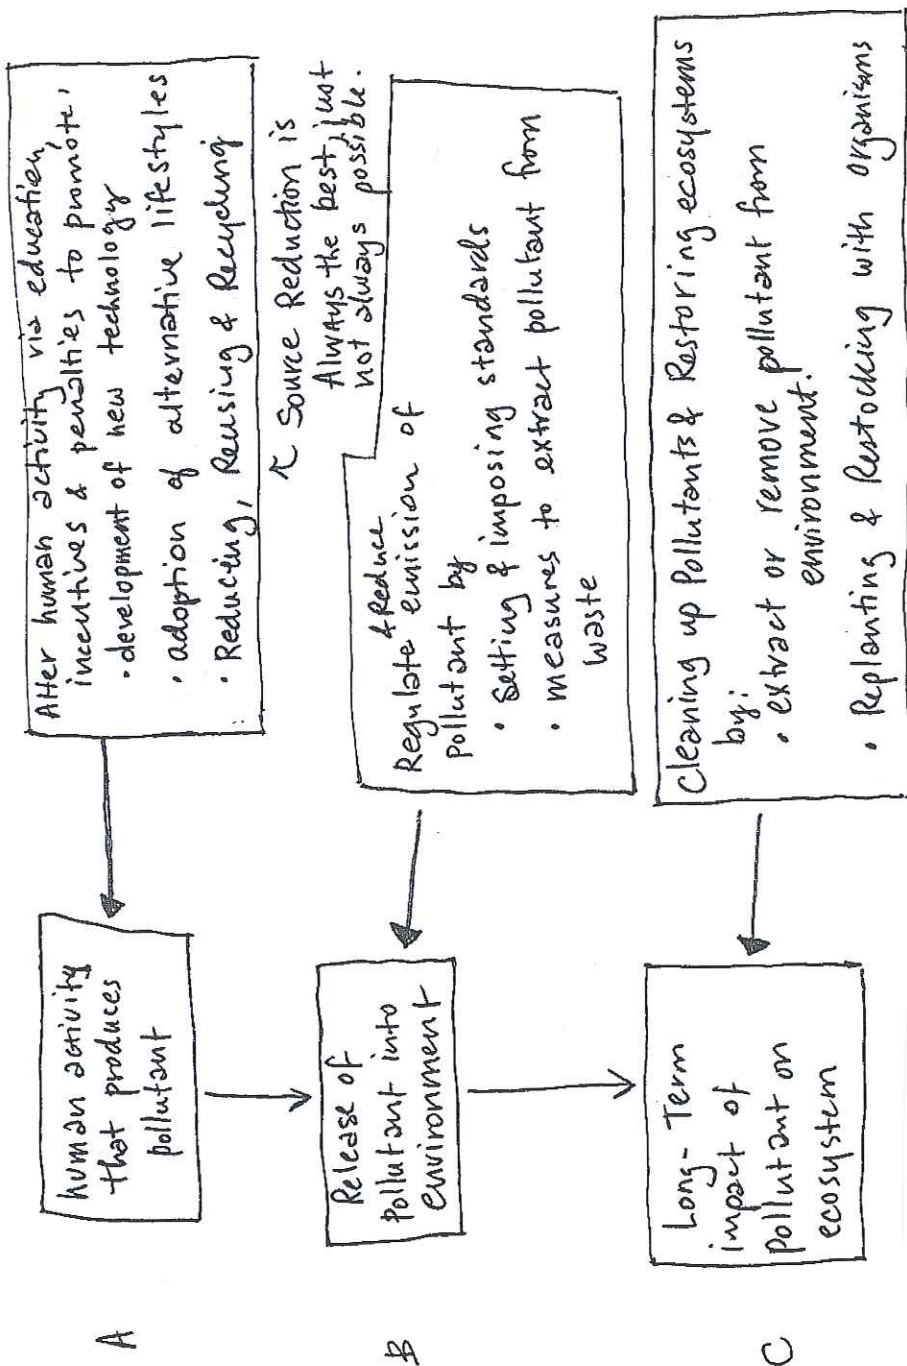 A
human activity
that produces
pollutant
Alter human activity via education,
incentives & penalties to promote,
• development of new technology
• adoption of alternative lifestyles
• Reducing, Reusing & Recycling
↖ Source Reduction is
Always the best, just
not always possible.
B
Release of
pollutant into
environment
& Reduce
Regulate emission of
pollutant by
• Setting & imposing standards
• measures to extract pollutant from
waste
C
Long-Term
impact of
pollutant on
ecosystem
Cleaning up Pollutants & Restoring ecosystems
by:
• extract or remove pollutant from
environment.
• Replanting & Restocking with organisms